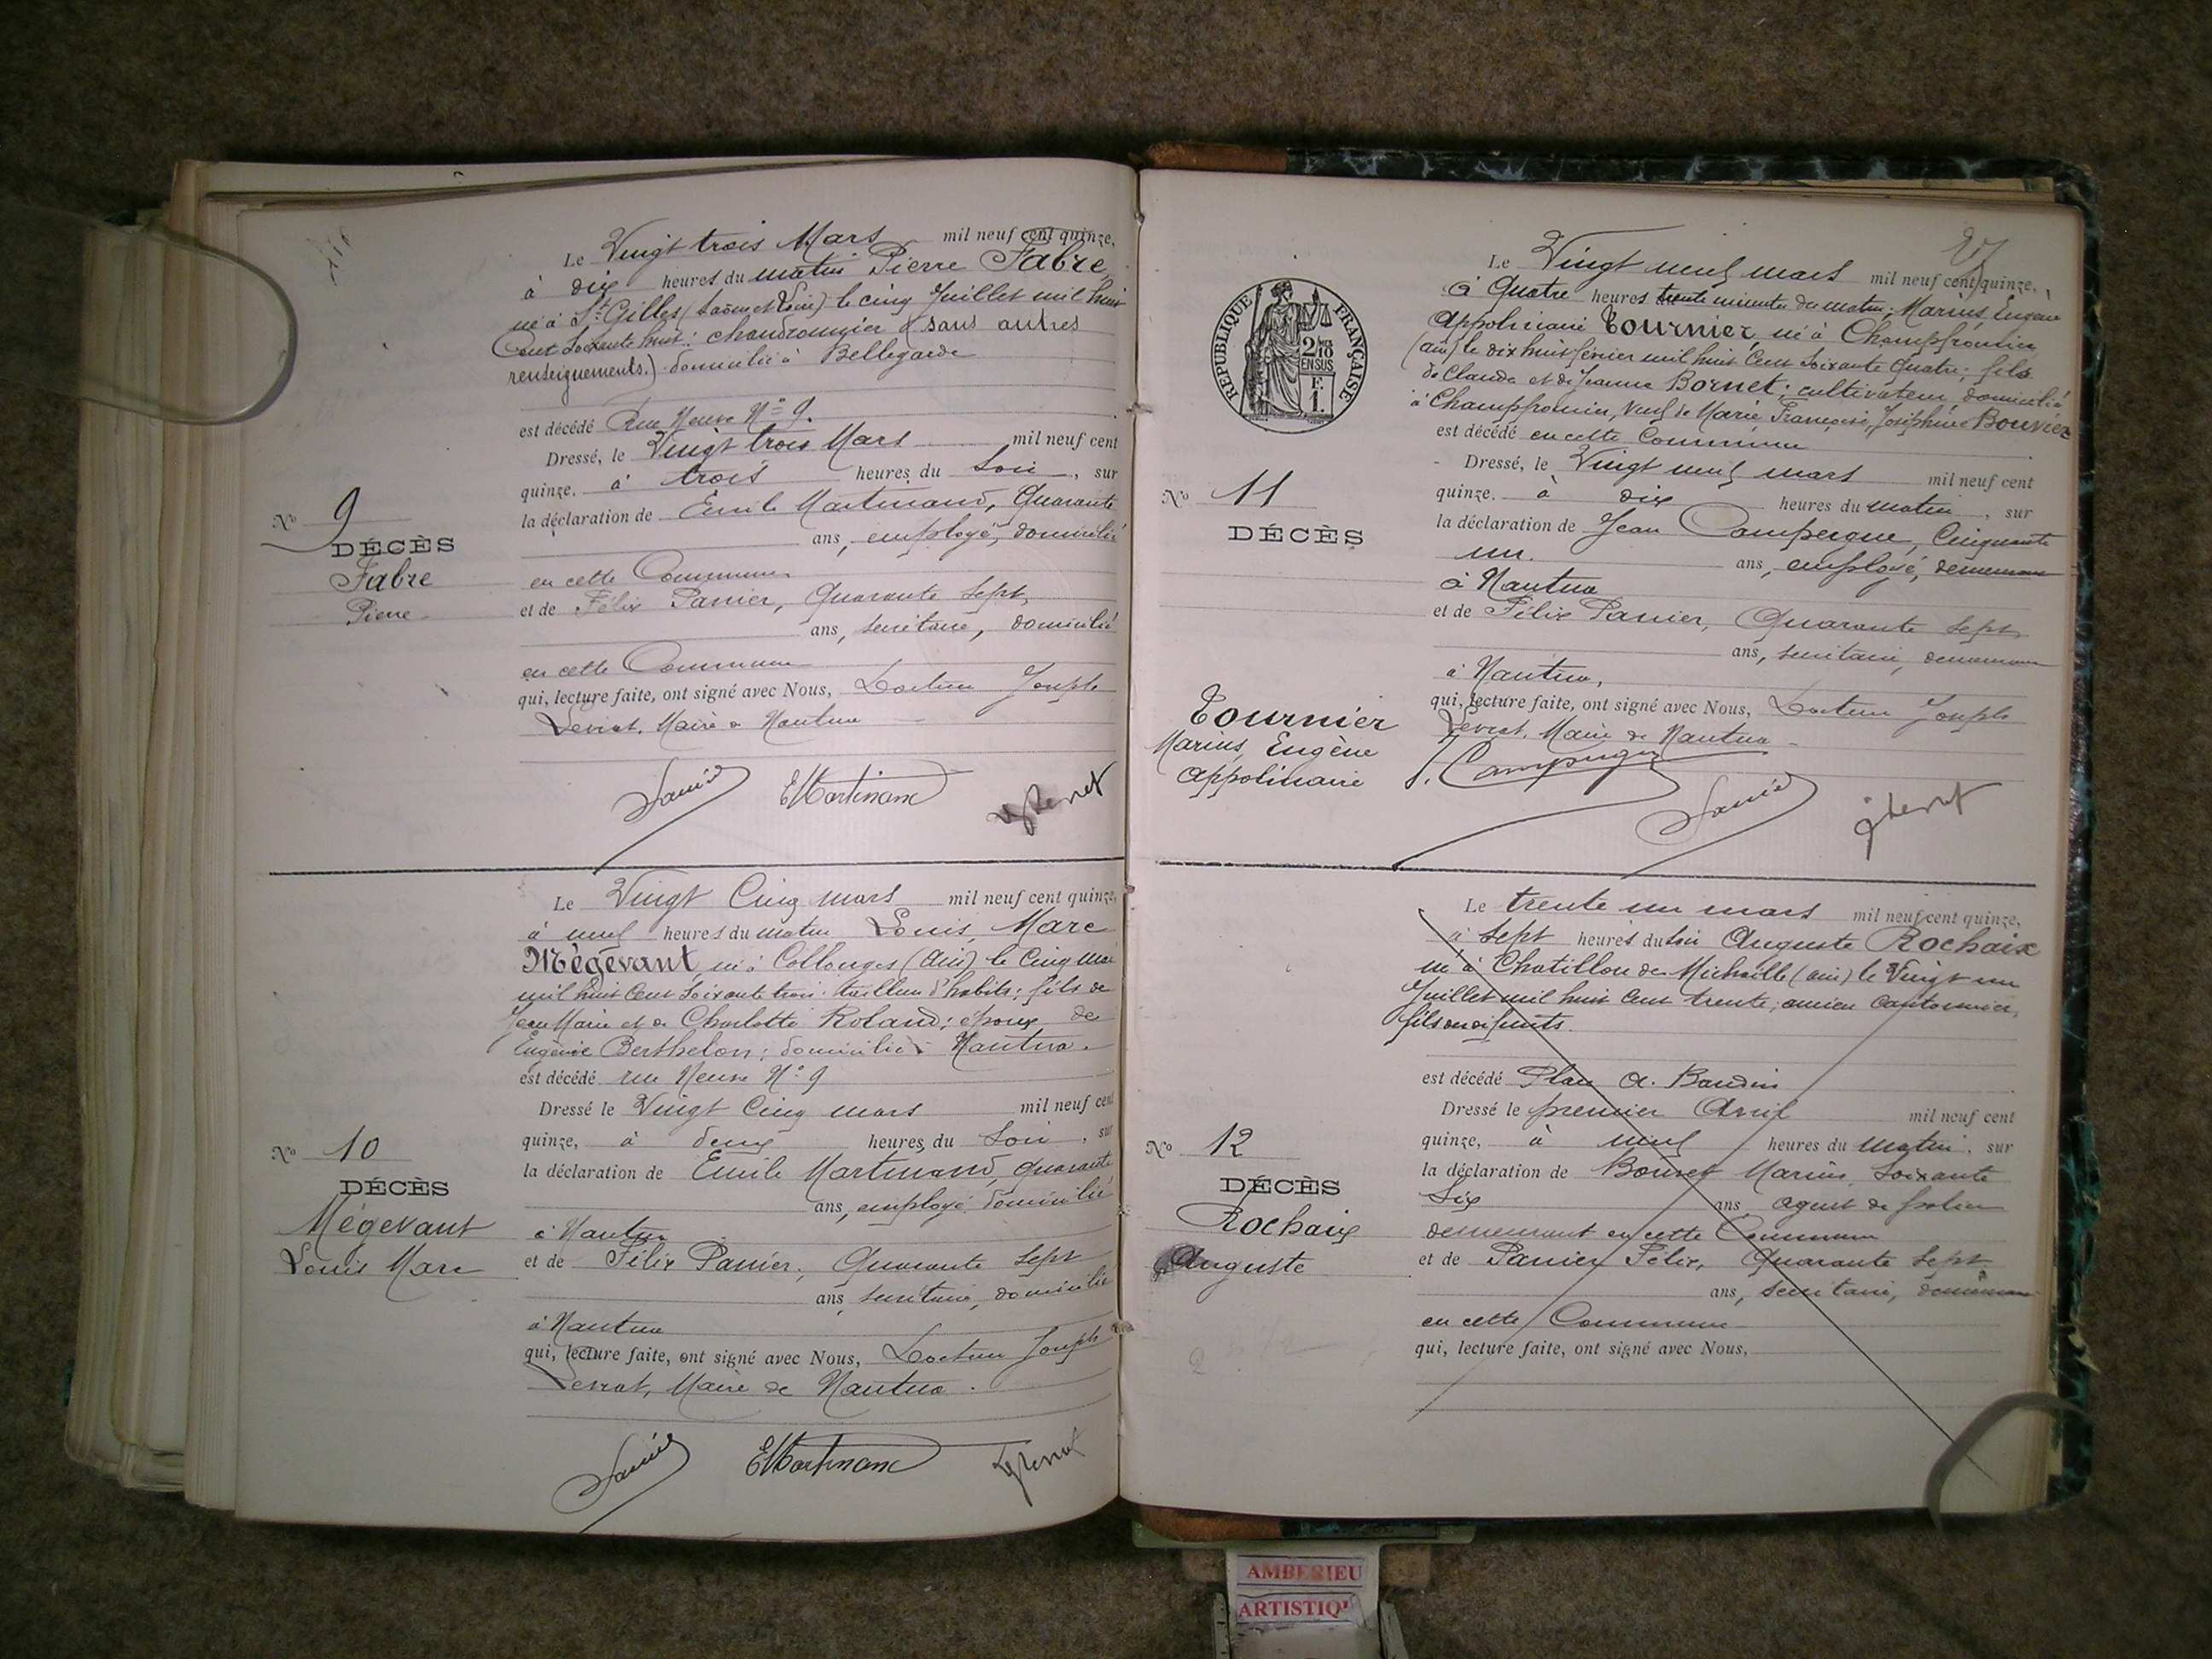 Le Vingt trois Mars mil neuf cent quinze,
à dix heures du matin Pierre Fabre
né à St Gilles (Saône et Loire) le cinq Juillet mil huit
Cent soixante huit: chaudronnier (sans autres
renseignements.) domicilié à Bellegarde
est décédé Rue Neuve No 9.
Dressé, le Vingt trois Mars mil neuf cent
quinze. à trois heures du Soir, sur
la déclaration de Emile Martinand, Quarante
ans, employé, domicilié
No 9
DÉCÈS
Fabre
Pierre
en cette Commune
et de Félix Panier, Quarante Sept
ans, secrétaire, domicilié
en cette Commune
qui, lecture faite, ont signé avec Nous, Docteur Joseph
Levrat, Maire de Nantua
Panier EMartinand
Le Vingt Cinq mars mil neuf cent quinze,
à neuf heures du matin Louis, Marc
Mégevant, né à Collonges (Ain) le Cinq mai
mil huit Cent soixante trois. tailleur d'habits; fils de
Jean Marie et de Charlotte Roland; époux de
Eugénie Berthelon; domicilié à Nantua.
est décédé rue Neuve No 9
Dressé le Vingt Cinq mars mil neuf cent
quinze, à deux heures du Soir, sur
la déclaration de Emile Martinand, quarante
ans, employé domicilié
No 10
DÉCÈS
Mégevant
Louis Marc
à Nantua
et de Félix Panier, Quarante Sept
ans, secrétaire, domicilié
à Nantua
qui, lecture faite, ont signé avec Nous, Docteur Joseph
Levrat, Maire de Nantua.
Panier EMartinand
Le Vingt neuf mars mil neuf cent quinze,
à Quatre heures trente minutes du matin, Marius, Eugène
Appolinaire Tournier, né à Champfromier
(Ain) le dix huit février mil huit Cent Soixante Quatre; fils
de Claude et de Jeanne Bornet; cultivateur, domicilié
à Champfromier, veuf de Marie Françoise, Joséphine Bouvier
est décédé en cette Commune
Dressé, le Vingt neuf mars mil neuf cent
quinze. à dix heures du matin, sur
la déclaration de Jean Campergue, Cinquante
un. ans, employé, demeurant
à Nantua
et de Félix Panier, Quarante Sept
ans, secrétaire, demeurant
à Nantua,
qui, lecture faite, ont signé avec Nous, Docteur Joseph
Levrat, Maire de Nantua
J. Campergue
Panier
RÉPUBLIQUE FRANÇAISE
2/10
EN SUS
F.
1.
No 11
DÉCÈS
Tournier
Marius, Eugène
Appolinaire
Le trente un mars mil neuf cent quinze,
à Sept heures du soir Auguste Rochaix
né à Chatillon de Michaille (ain) le Vingt un
Juillet mil huit Cent trente; ancien Cantonnier,
fils de défunts.
est décédé Place A. Baudin
Dressé le premier Avril mil neuf cent
quinze, à neuf heures du matin, sur
la déclaration de Bouvet Marius, Soixante
Six ans agent de police
demeurant en cette Commune
et de Panier Félix, Quarante Sept
ans, secrétaire, demeurant
en cette Commune
qui, lecture faite, ont signé avec Nous,
No 12
DÉCÈS
Rochaix
Auguste
AMBERIEU
ARTISTIQ